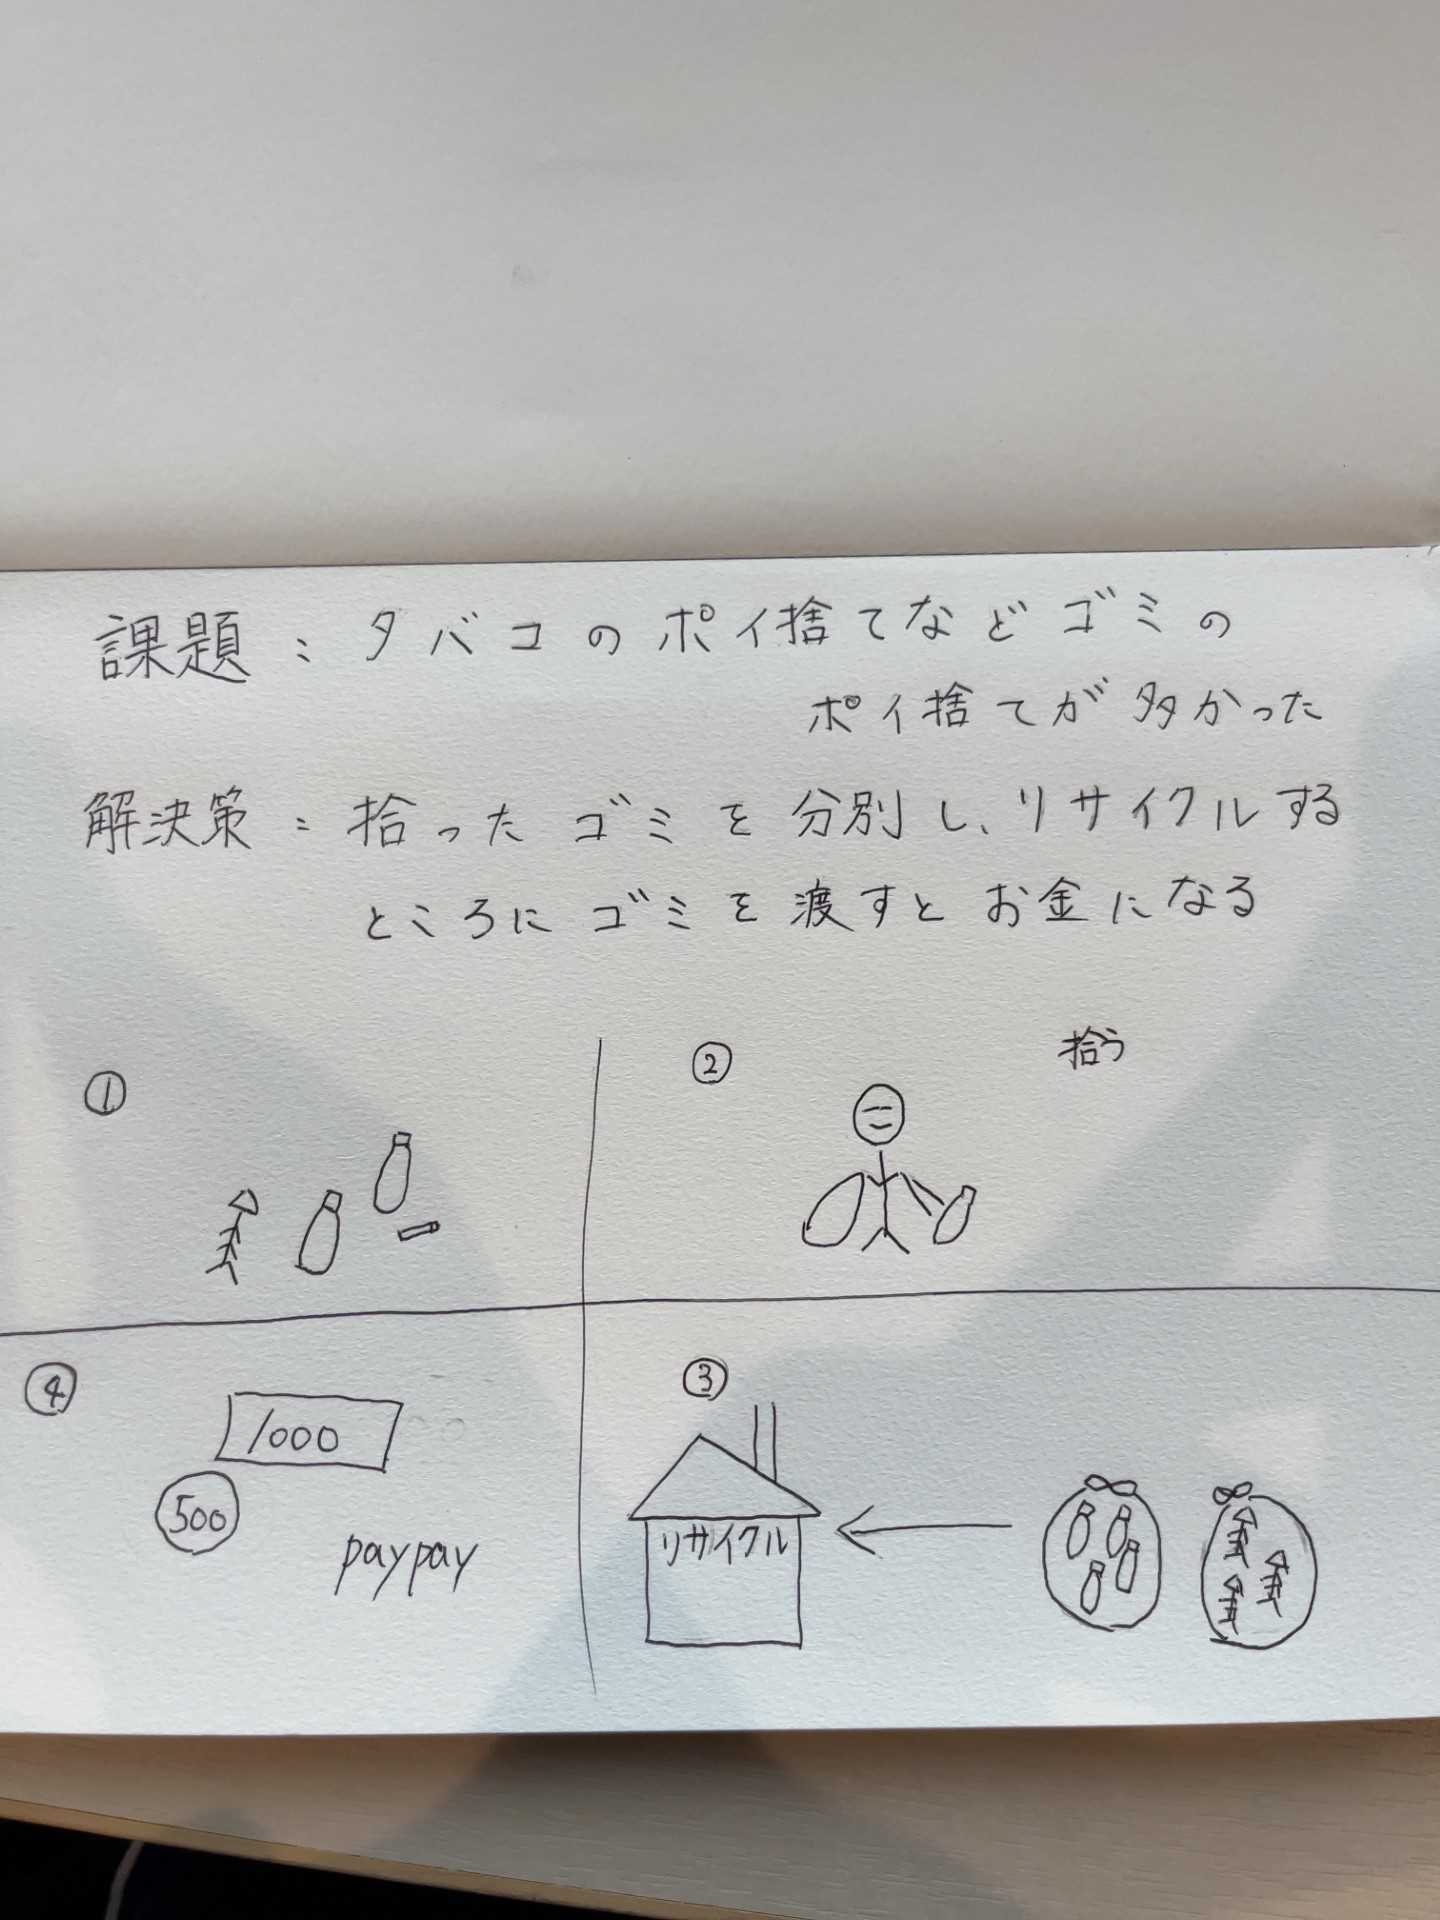 課題：タバコのポイ捨てなどゴミの
ポイ捨てが多かった
解決策：拾ったゴミを分別し、リサイクルする
ところにゴミを渡すとお金になる
①
② 拾う
③
リサイクル
④
1000
500
paypay